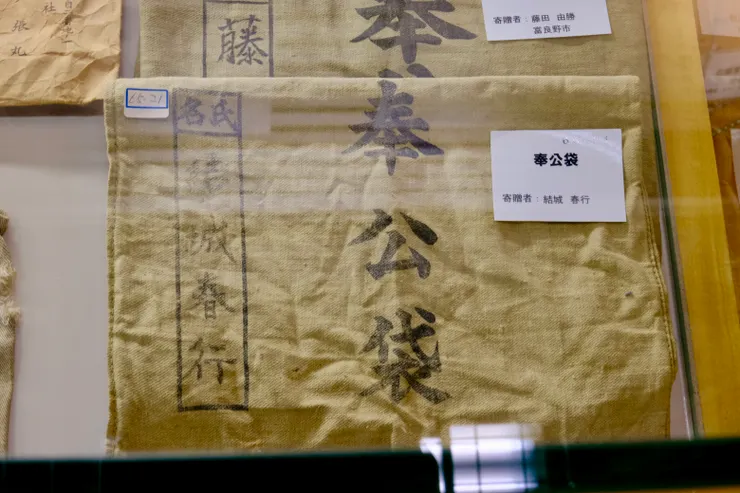 奉
藤
寄贈者：藤田　由勝
富良野市
奉公袋
氏名
結城春行
奉公袋
寄贈者：結城　春行